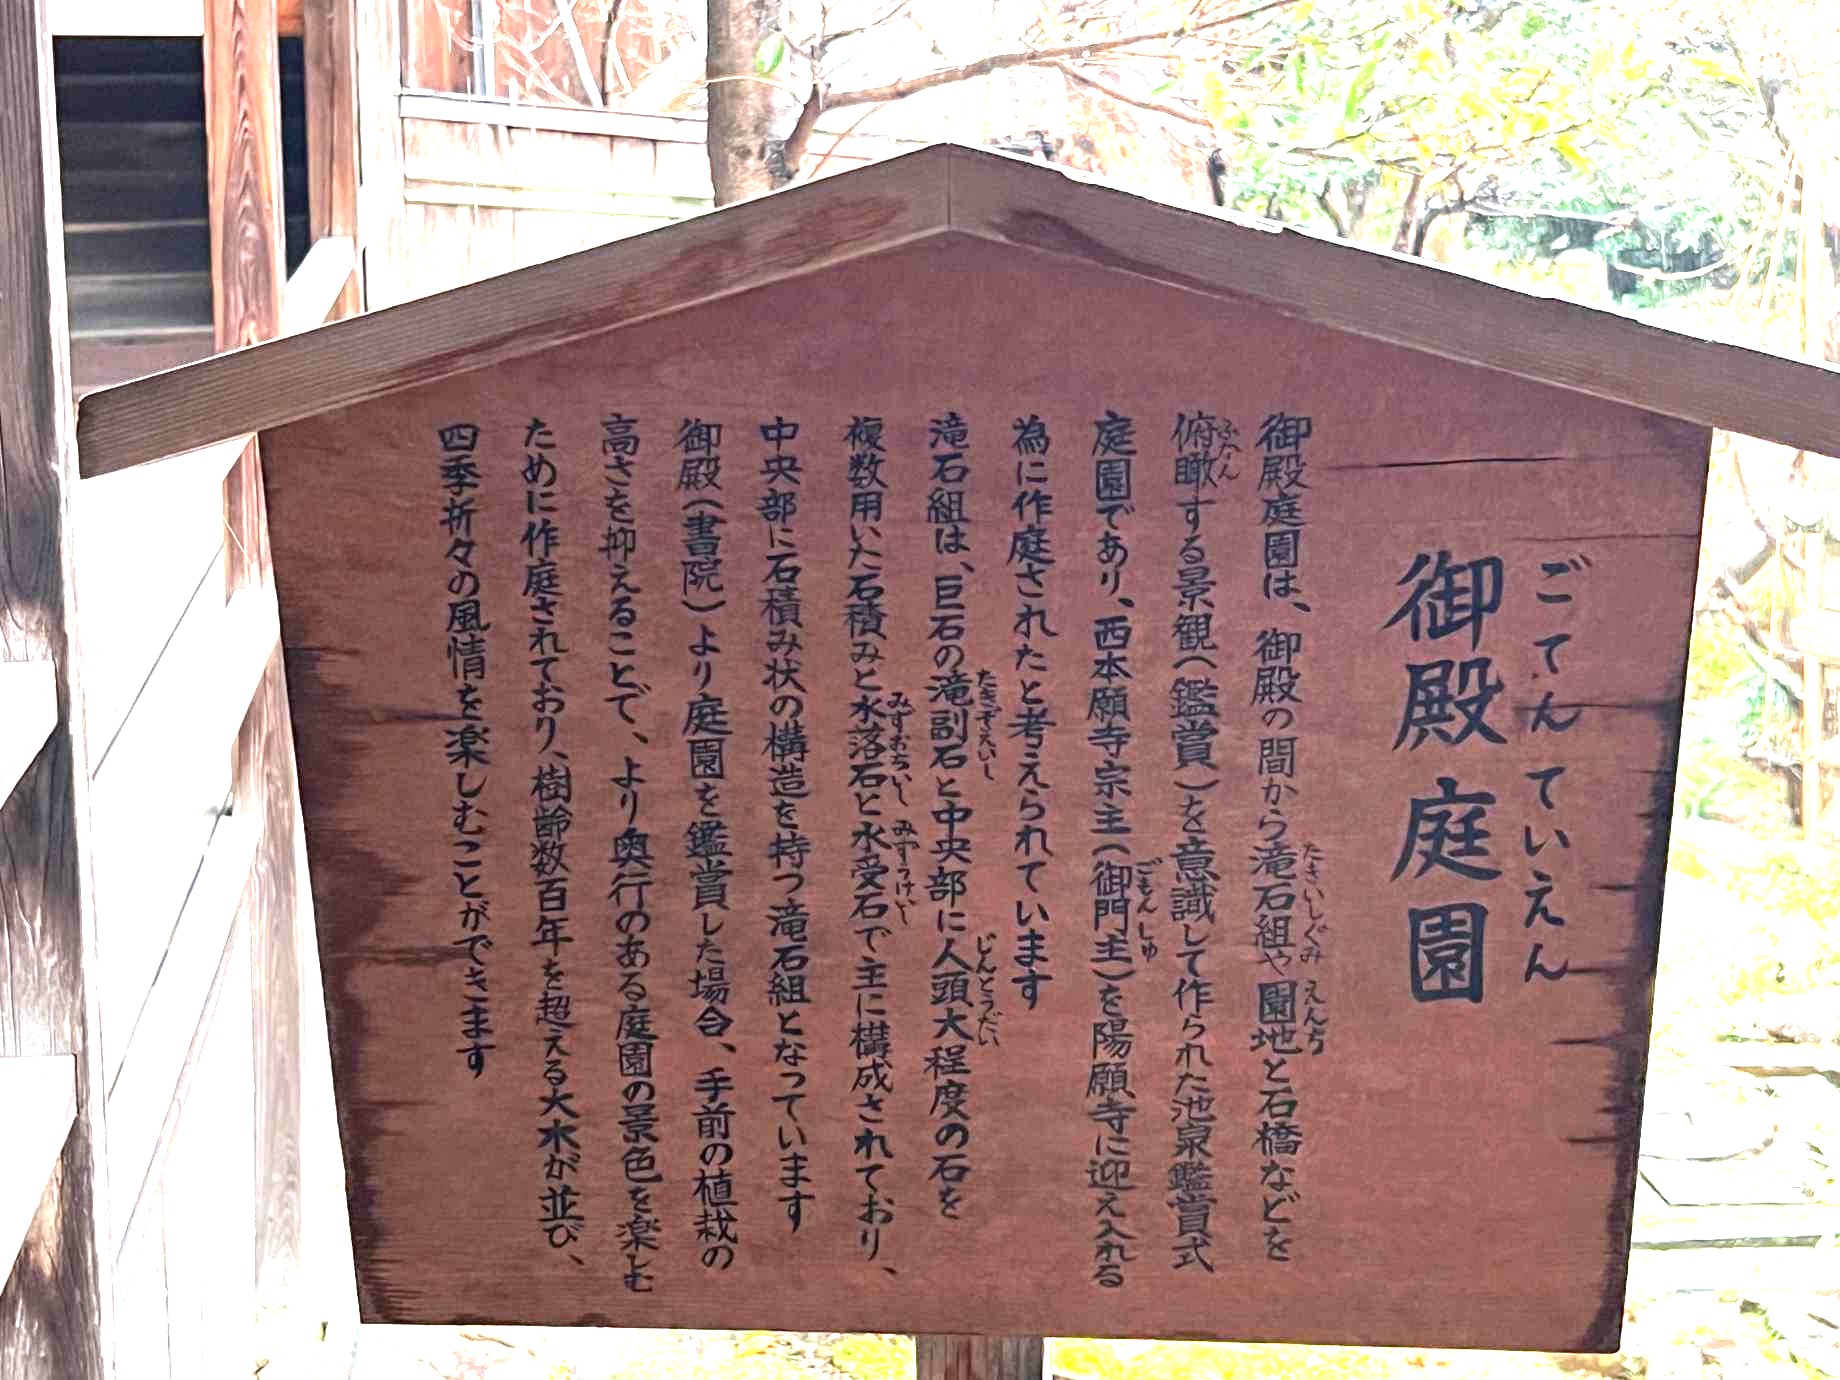 ごてんていえん
御殿庭園
御殿庭園は、御殿の間から滝石組や園地と石橋などを
たきいしぐみ えんち
俯瞰する景観(鑑賞)を意識して作られた池泉鑑賞式
ふかん
庭園であり、西本願寺宗主(御門主)を陽願寺に迎え入れる
ごもんしゅ
為に作庭されたと考えられています
滝石組は、巨石の滝副石と中央部に人頭大程度の石を
たきぞえいし じんとうだい
複数用いた石積みと水落石と水受石で主に構成されており、
みずおちいし みずうけいし
中央部に石積み状の構造を持つ滝石組となっています
御殿(書院)より庭園を鑑賞した場合、手前の植栽の
高さを抑えることで、より奥行のある庭園の景色を楽しむ
ために作庭されており、樹齢数百年を超える大木が並び、
四季折々の風情を楽しむことができます